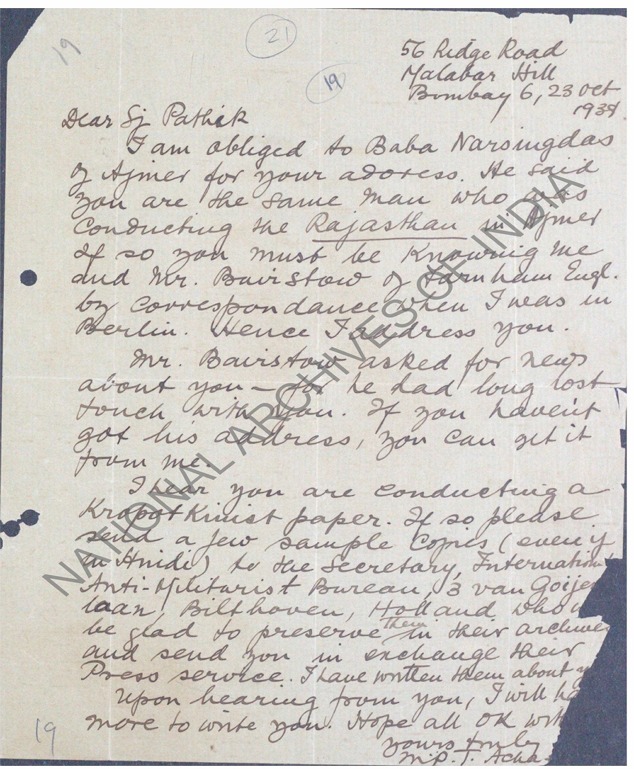 19
21
19
56 Ridge Road
Malabar Hill
Bombay 6, 23 Oct
1938
Dear Sj Pathik
I am obliged to Baba Narsingdas
of Ajmer for your address. He said
you are the same man who was
conducting the Rajasthan in Ajmer
If so you must be knowing me
and Mr. Bairstow of Farnham Engl.
by correspondance when I was in
Berlin. Hence I address you.
Mr. Bairstow asked for news
about you – for he had long lost
touch with you. If you haven't
got his address, you can get it
from me.
I hear you are conducting a
Kropotkinist paper. If so please
send a few sample copies (even if
in Hindi) to the Secretary, Internation
Anti-Militarist Bureau, 3 van Goijen
laan, Bilthoven, Holland who
be glad to preserve them in their archive
and send you in exchange their
Press service. I have written them about y
Upon hearing from you, I will ha
more to write you. Hope all OK with
yours truly
M.P.T. Acha
19
NATIONAL ARCHIVES OF INDIA